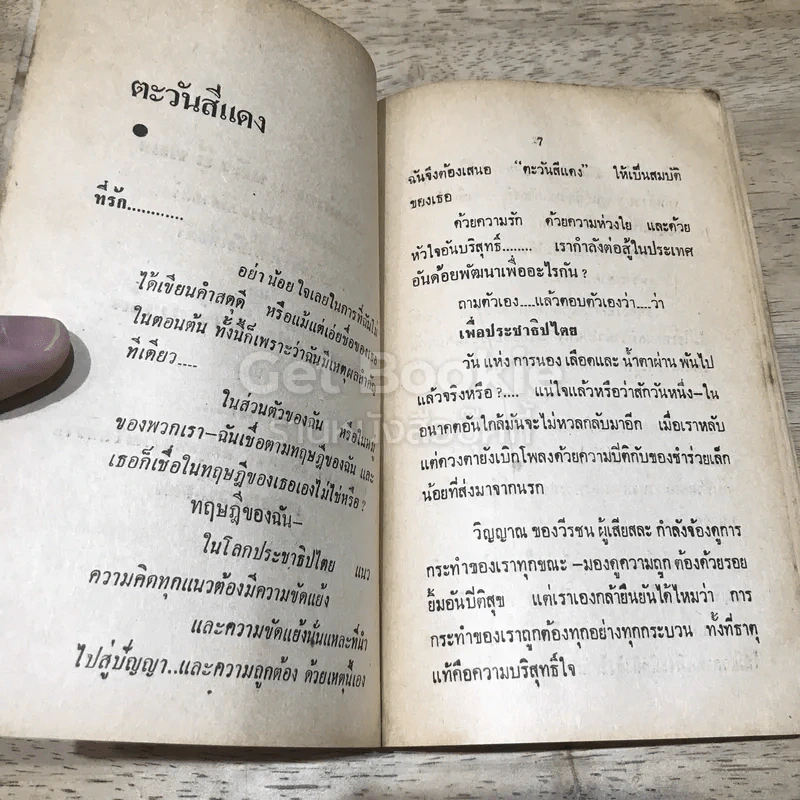 ตะวันสีแดง
●
ที่รัก............
อย่าน้อยใจเลยในการที่ฉันไม่
ได้เขียนคำสดุดี หรือแม้แต่เอ่ยชื่อของเธอ
ในตอนต้น ทั้งนี้ก็เพราะว่าฉันมีเหตุผลสำคัญ
ทีเดียว....
ในส่วนตัวของฉัน หรือในหมู่
ของพวกเรา–ฉันเชื่อตามทฤษฎีของฉัน และ
เธอก็เชื่อในทฤษฎีของเธอเองไม่ใช่หรือ?
ทฤษฎีของฉัน–
ในโลกประชาธิปไตย แนว
ความคิดทุกแนวต้องมีความขัดแย้ง
และความขัดแย้งนั่นแหละที่นำ
ไปสู่ปัญญา..และความถูกต้อง ด้วยเหตุนี้เอง
7
ฉันจึงต้องเสนอ “ตะวันสีแดง” ให้เป็นสมบัติ
ของเธอ
ด้วยความรัก ด้วยความห่วงใย และด้วย
หัวใจอันบริสุทธิ์........ เรากำลังต่อสู้ในประเทศ
อันด้อยพัฒนาเพื่ออะไรกัน?
ถามตัวเอง....แล้วตอบตัวเองว่า....ว่า
เพื่อประชาธิปไตย
วัน แห่ง การนอง เลือดและ น้ำตาผ่าน พ้นไป
แล้วจริงหรือ?.... แน่ใจแล้วหรือว่าสักวันหนึ่ง–ใน
อนาคตอันใกล้มันจะไม่หวลกลับมาอีก เมื่อเราหลับ
แต่ดวงตายังเบิกโพลงด้วยความปีติกับของชำร่วยเล็ก
น้อยที่ส่งมาจากนรก
วิญญาณ ของวีรชน ผู้เสียสละ กำลังจ้องดูการ
กระทำของเราทุกขณะ –มองดูความถูก ต้องด้วยรอย
ยิ้มอันปีติสุข แต่เราเองกล้ายืนยันได้ไหมว่า การ
กระทำของเราถูกต้องทุกอย่างทุกกระบวน ทั้งที่ธาตุ
แท้คือความบริสุทธิ์ใจ
Get Bookie
ร้านหนังสือบุ๊คกี้